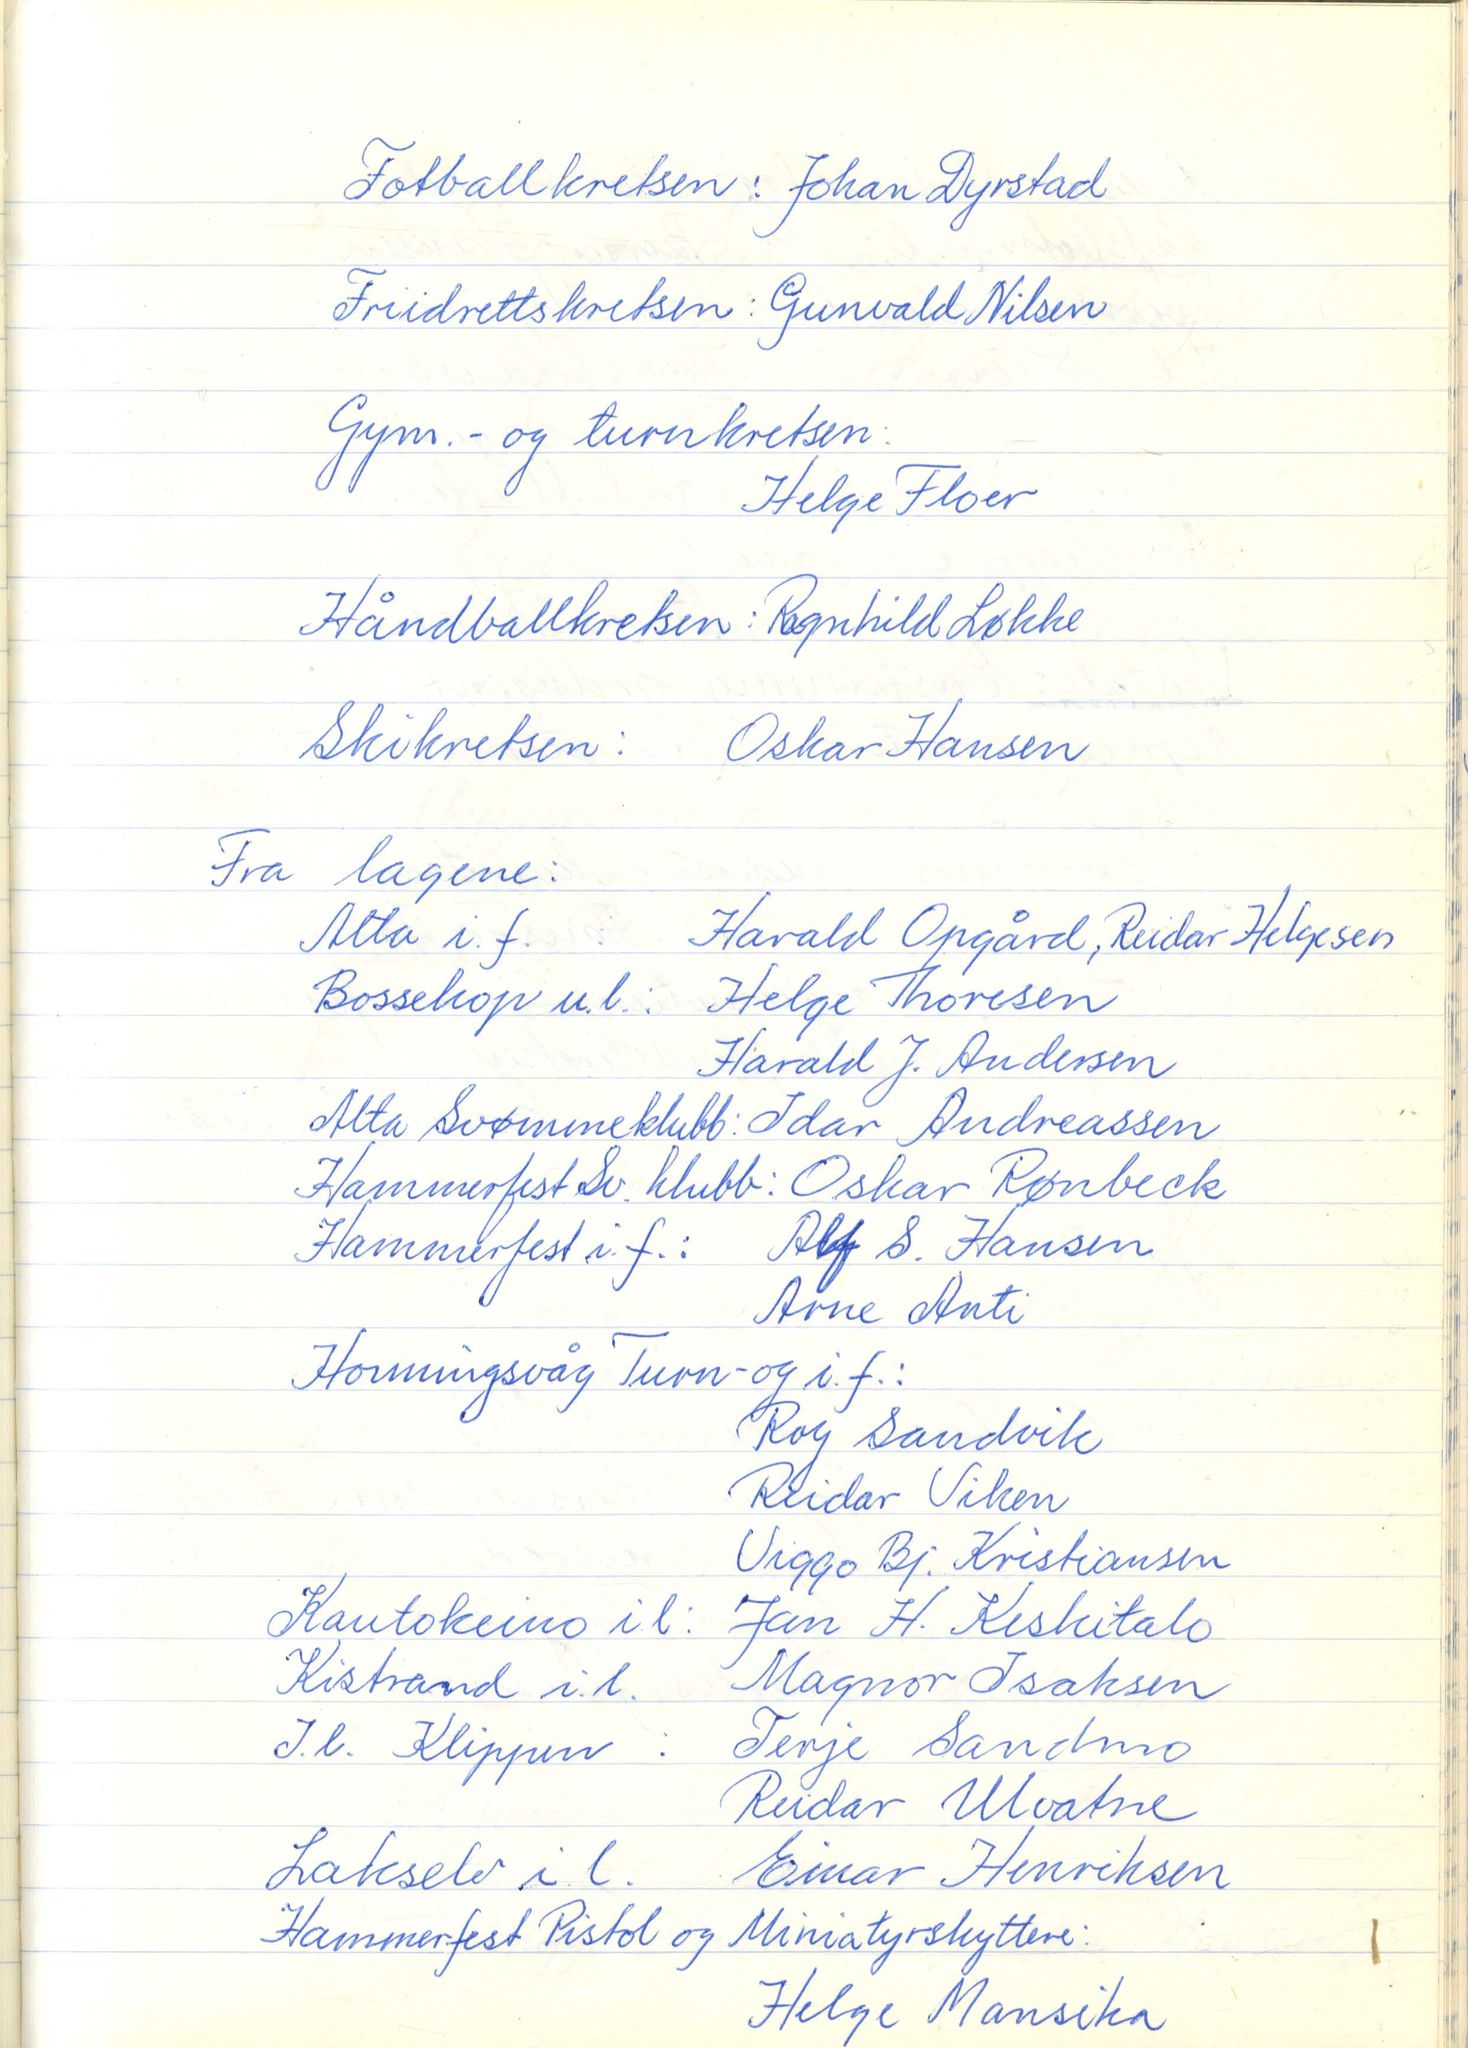 Fotballkretsen: Johan Dyrstad
Friidrettskretsen: Gunvald Nilsen
Gym.- og turnkretsen:
Helge Floer
Håndballkretsen: Ragnhild Løkke
Skikretsen: Oskar Hansen
Fra lagene:
Alta i. f. : Harald Opgård, Reidar Helgesen
Bossekop u.l.: Helge Thoresen
Harald J. Andersen
Alta Svømmeklubb: Idar Andreassen
Hammerfest Sv. klubb: Oskar Rønbeck
Hammerfest i. f.: Alf S. Hansen
Arne Anti
Honningsvåg Turn- og i. f.:
Roy Sandvik
Reidar Viken
Viggo Bj. Kristiansen
Kautokeino i.l: Jan H. Keskitalo
Kistrand i.l. Magnor Isaksen
I.l. Klippen : Terje Sandmo
Reidar Ulvatne
Lakselv i l. Einar Henriksen
Hammerfest Pistol og Miniatyrskyttere:
Helge Mansika